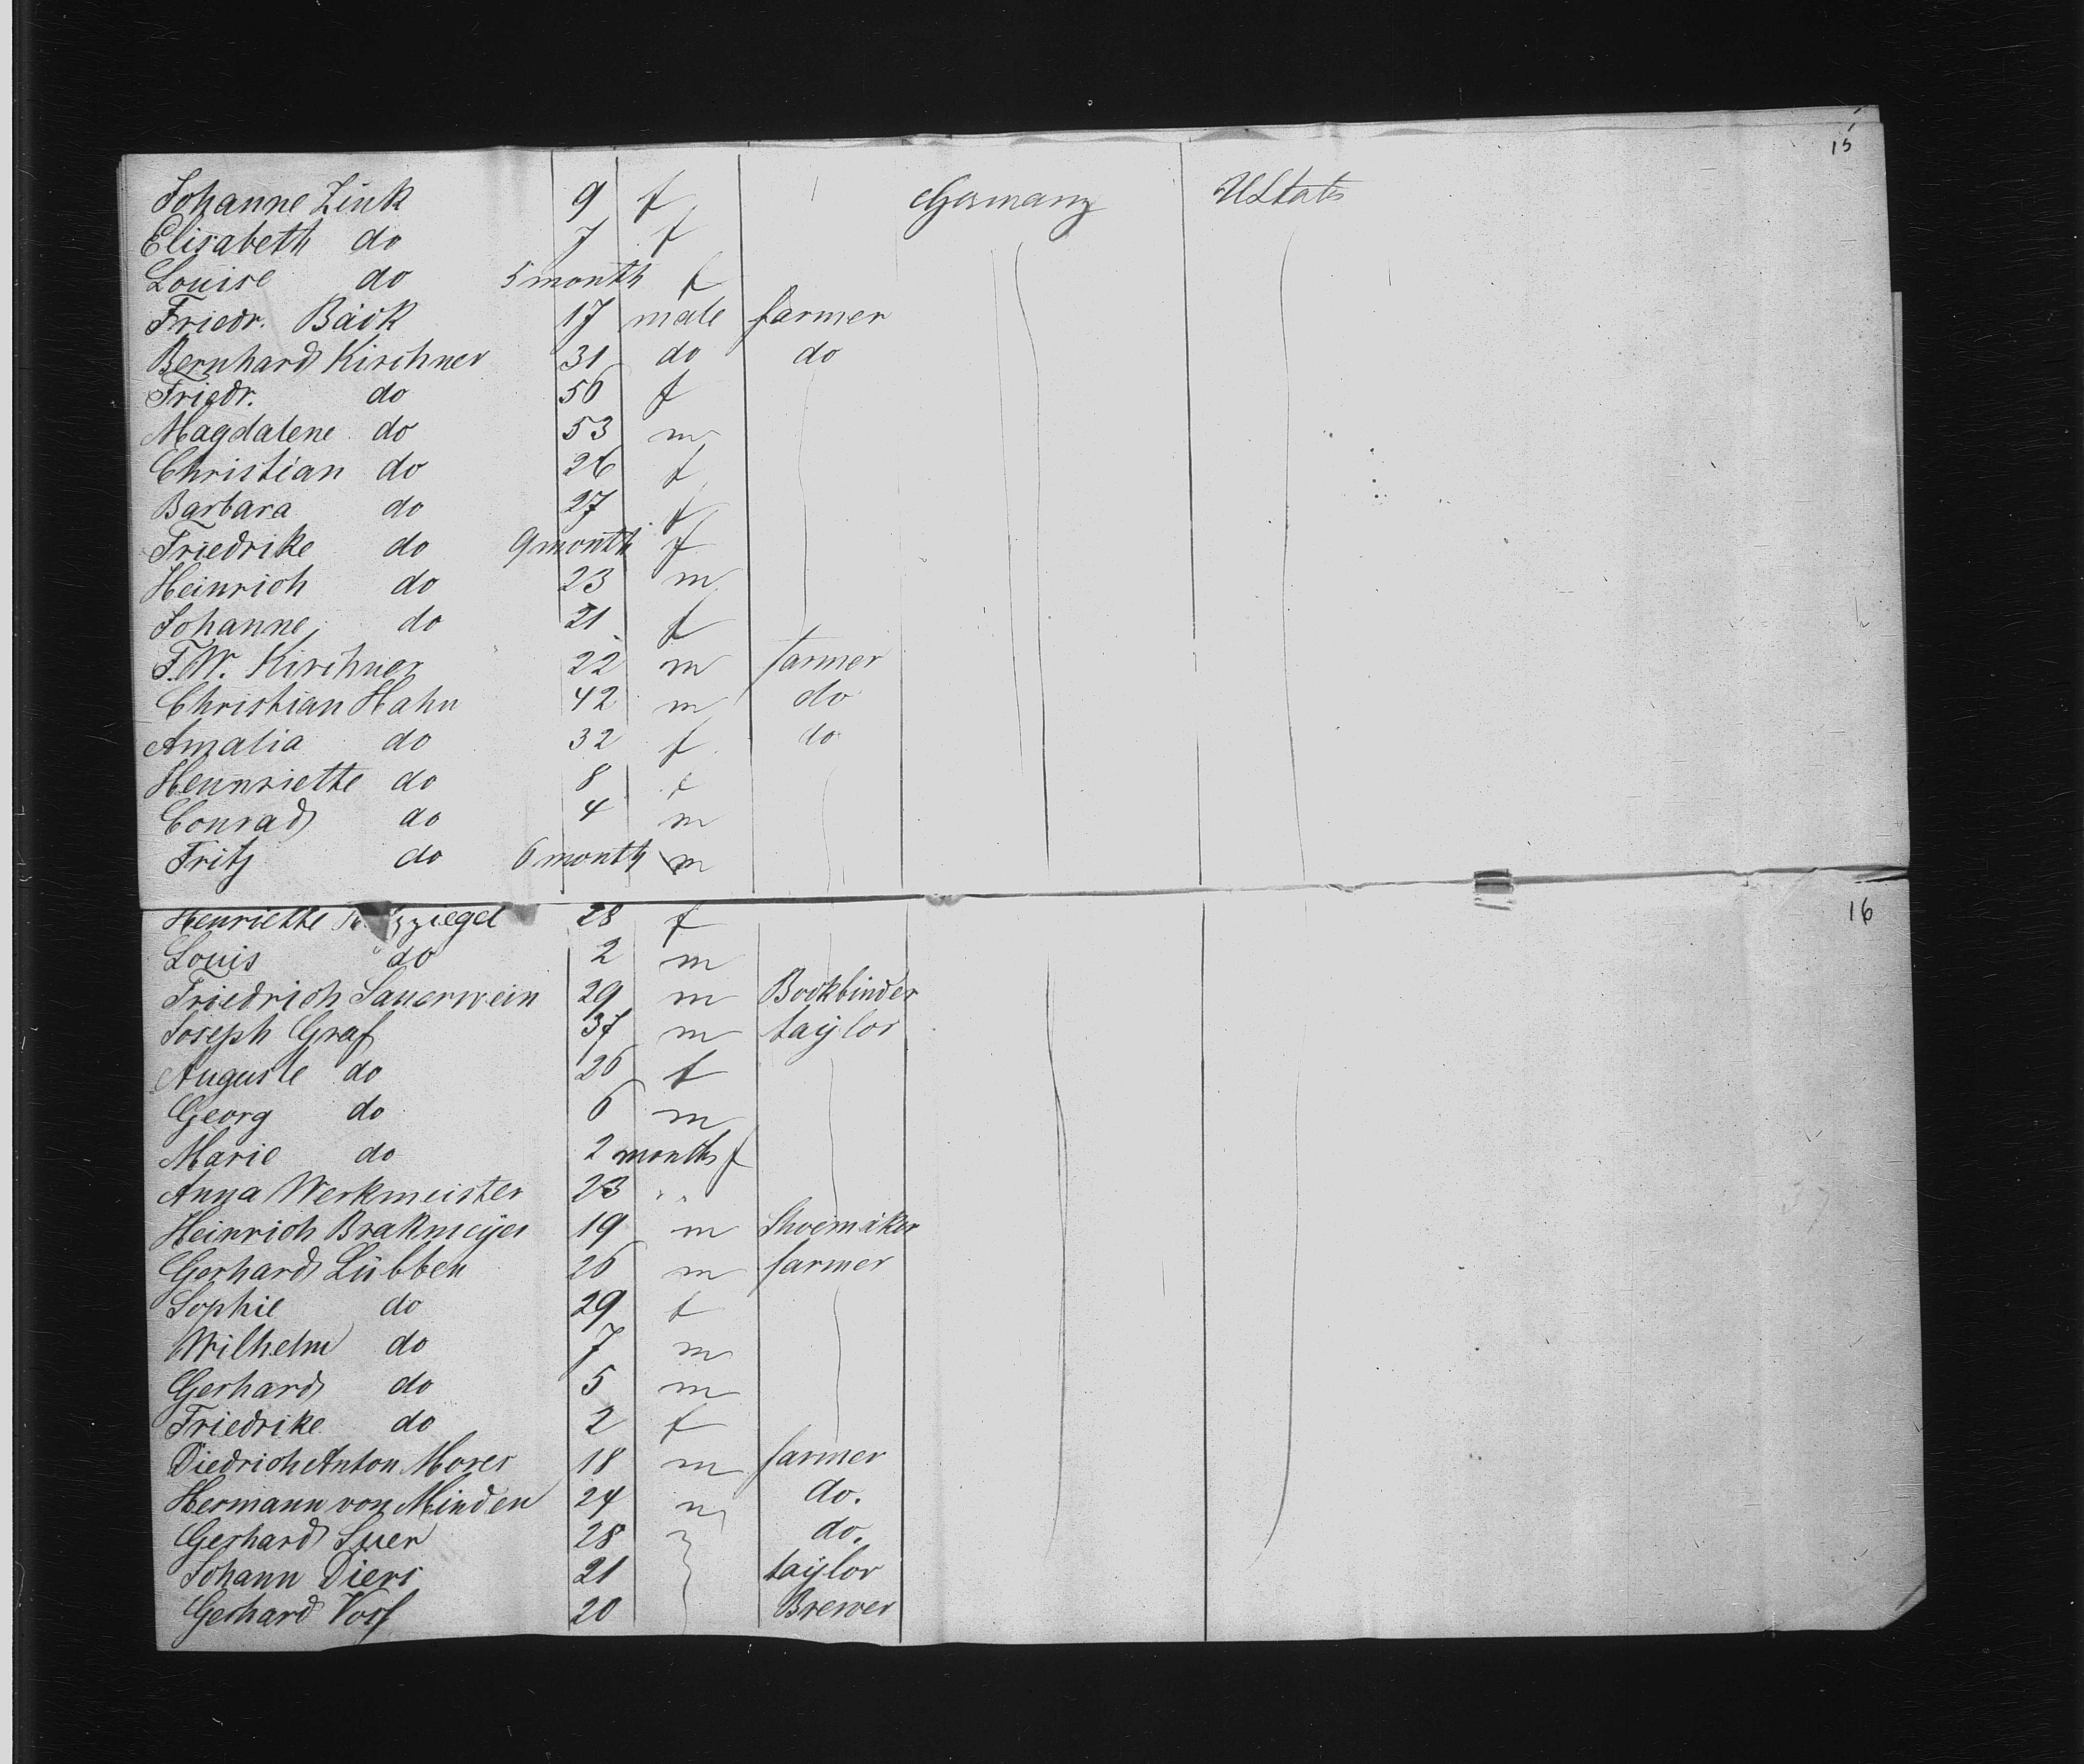 15
Johanne Zink 9 f Germany UStates
Elisabeth do 7 f
Louise do 5 month f
Friedr. Bäck 17 male farmer
Bernhard Kirchner 31 do do
Friedr. do 56 f
Magdalene do 53 m
Christian do 26 f
Barbara do 27 f
Friedrike do 9 month f
Heinrich do 23 m
Johanne do 21 f
F.W. Kirchner 22 m farmer
Christian Hahn 42 m do
Amalia do 32 f do
Hennriette do 8 f
Conrad do 4 m
Fritz do 6 month m
16
Henriette 28 f
Louis do 2 m
Friedrich Sauerwein 29 m Bookbinder
Joseph Graf 37 m taylor
Auguste do 26 f
Georg do 6 m
Marie do 2 months f
Anna Werkmeister 23 " "
Heinrich Brakmeyer 19 m Shoemaker
Gerhard Lübben 26 m farmer
Sophie do 29 f
Wilhelm do 7 m
Gerhard do 5 m
Friedrike do 2 f
Diedrich Anton 18 m farmer
Hermann von Minden 24 m do.
Gerhard Suer 28 do.
Johann Diers 21 taylor
Gerhard 20 Brewer